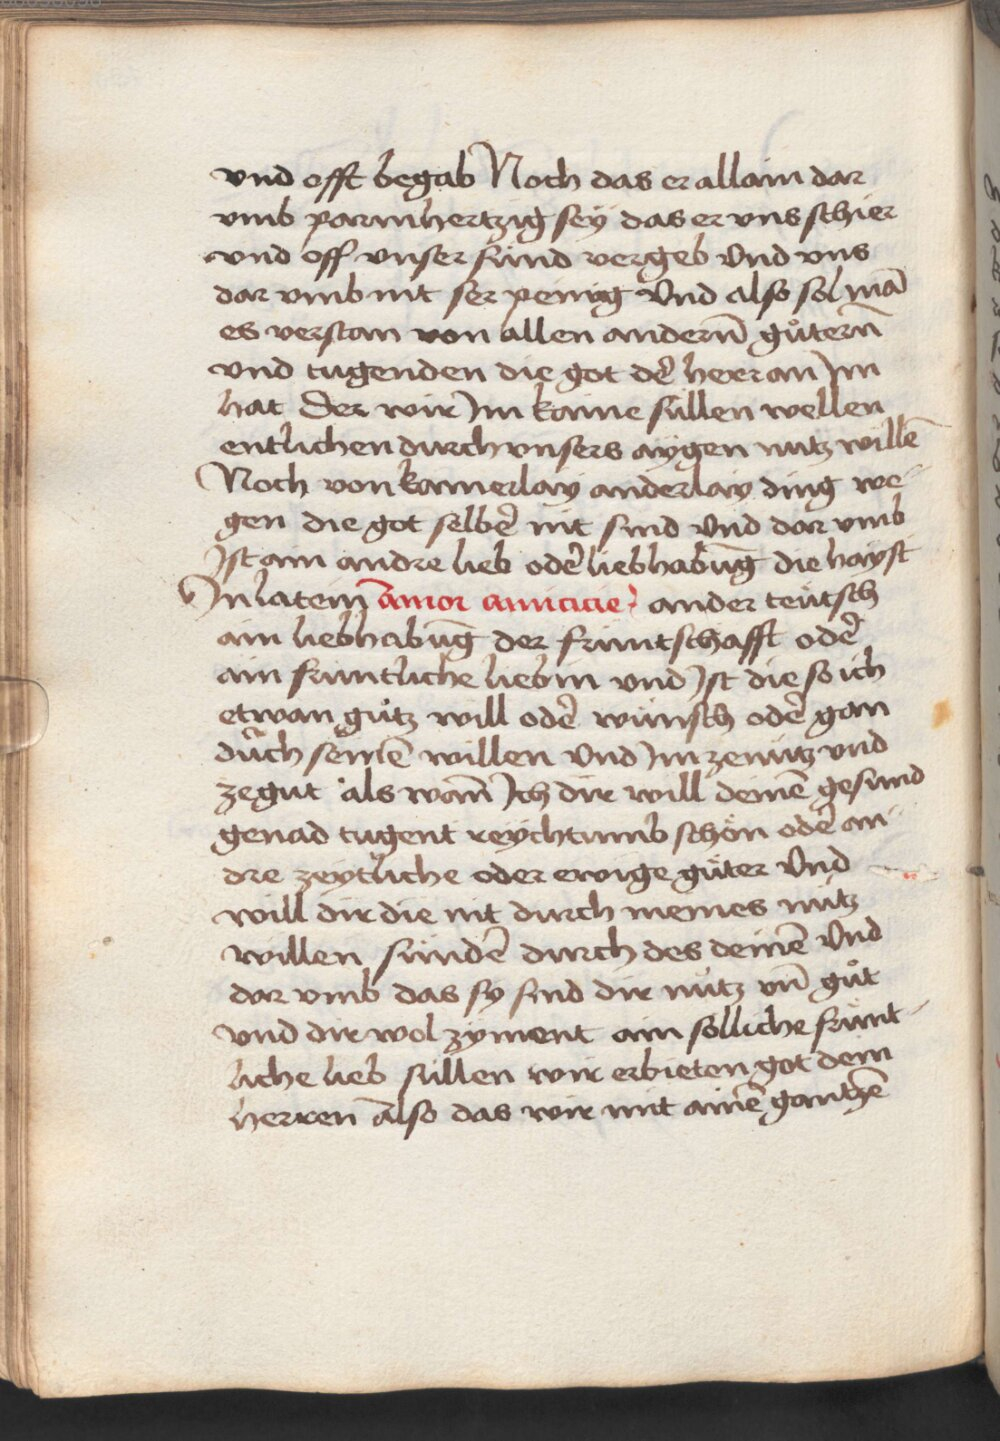 vnd offt begab Noch das er allain dar
vmb parmhertzig sey das er vns schier
vnd off vnser sünd vergeb Vnd vns
dar vmb nit ser penig Vnd also sol mā
es verstan von allen andern̄ gůtern̄
vnd tugenden die got der̄ herr an Im
hat Der wir Im kaine süllen wellen
entlichen durch vnsers aygen nutz willē
Noch von kainerlay anderlay ding we-
gen die got selber̄ nit sind Vnd dar vmb
Ist ain andre lieb oder̄ liebhabūg die hayst
In latein Amor amicicie ander teütsch
ain liebhabūg der früntschafft oder̄
ain früntliche liebin vnd Ist die so ich
etwan gůtz will oder̄ wünsch oder̄ gan
durch seinē willen Vnd Im ze nutz vnd
ze gut als wann̄ Ich dir will deinē gesund
genad tugent reychtumb schön oder̄ an-
dre zeytliche oder ewige güter Vnd
will dir die nit durch meines nutz
willen sünder̄ durch des deinē Vnd
dar vmb das sy sind dir nutz vn̄ gůt
vnd dir wol zyment ain solliche frünt-
liche lieb süllen wir erbieten got dem
herren Also das wir mit ainē gantzē